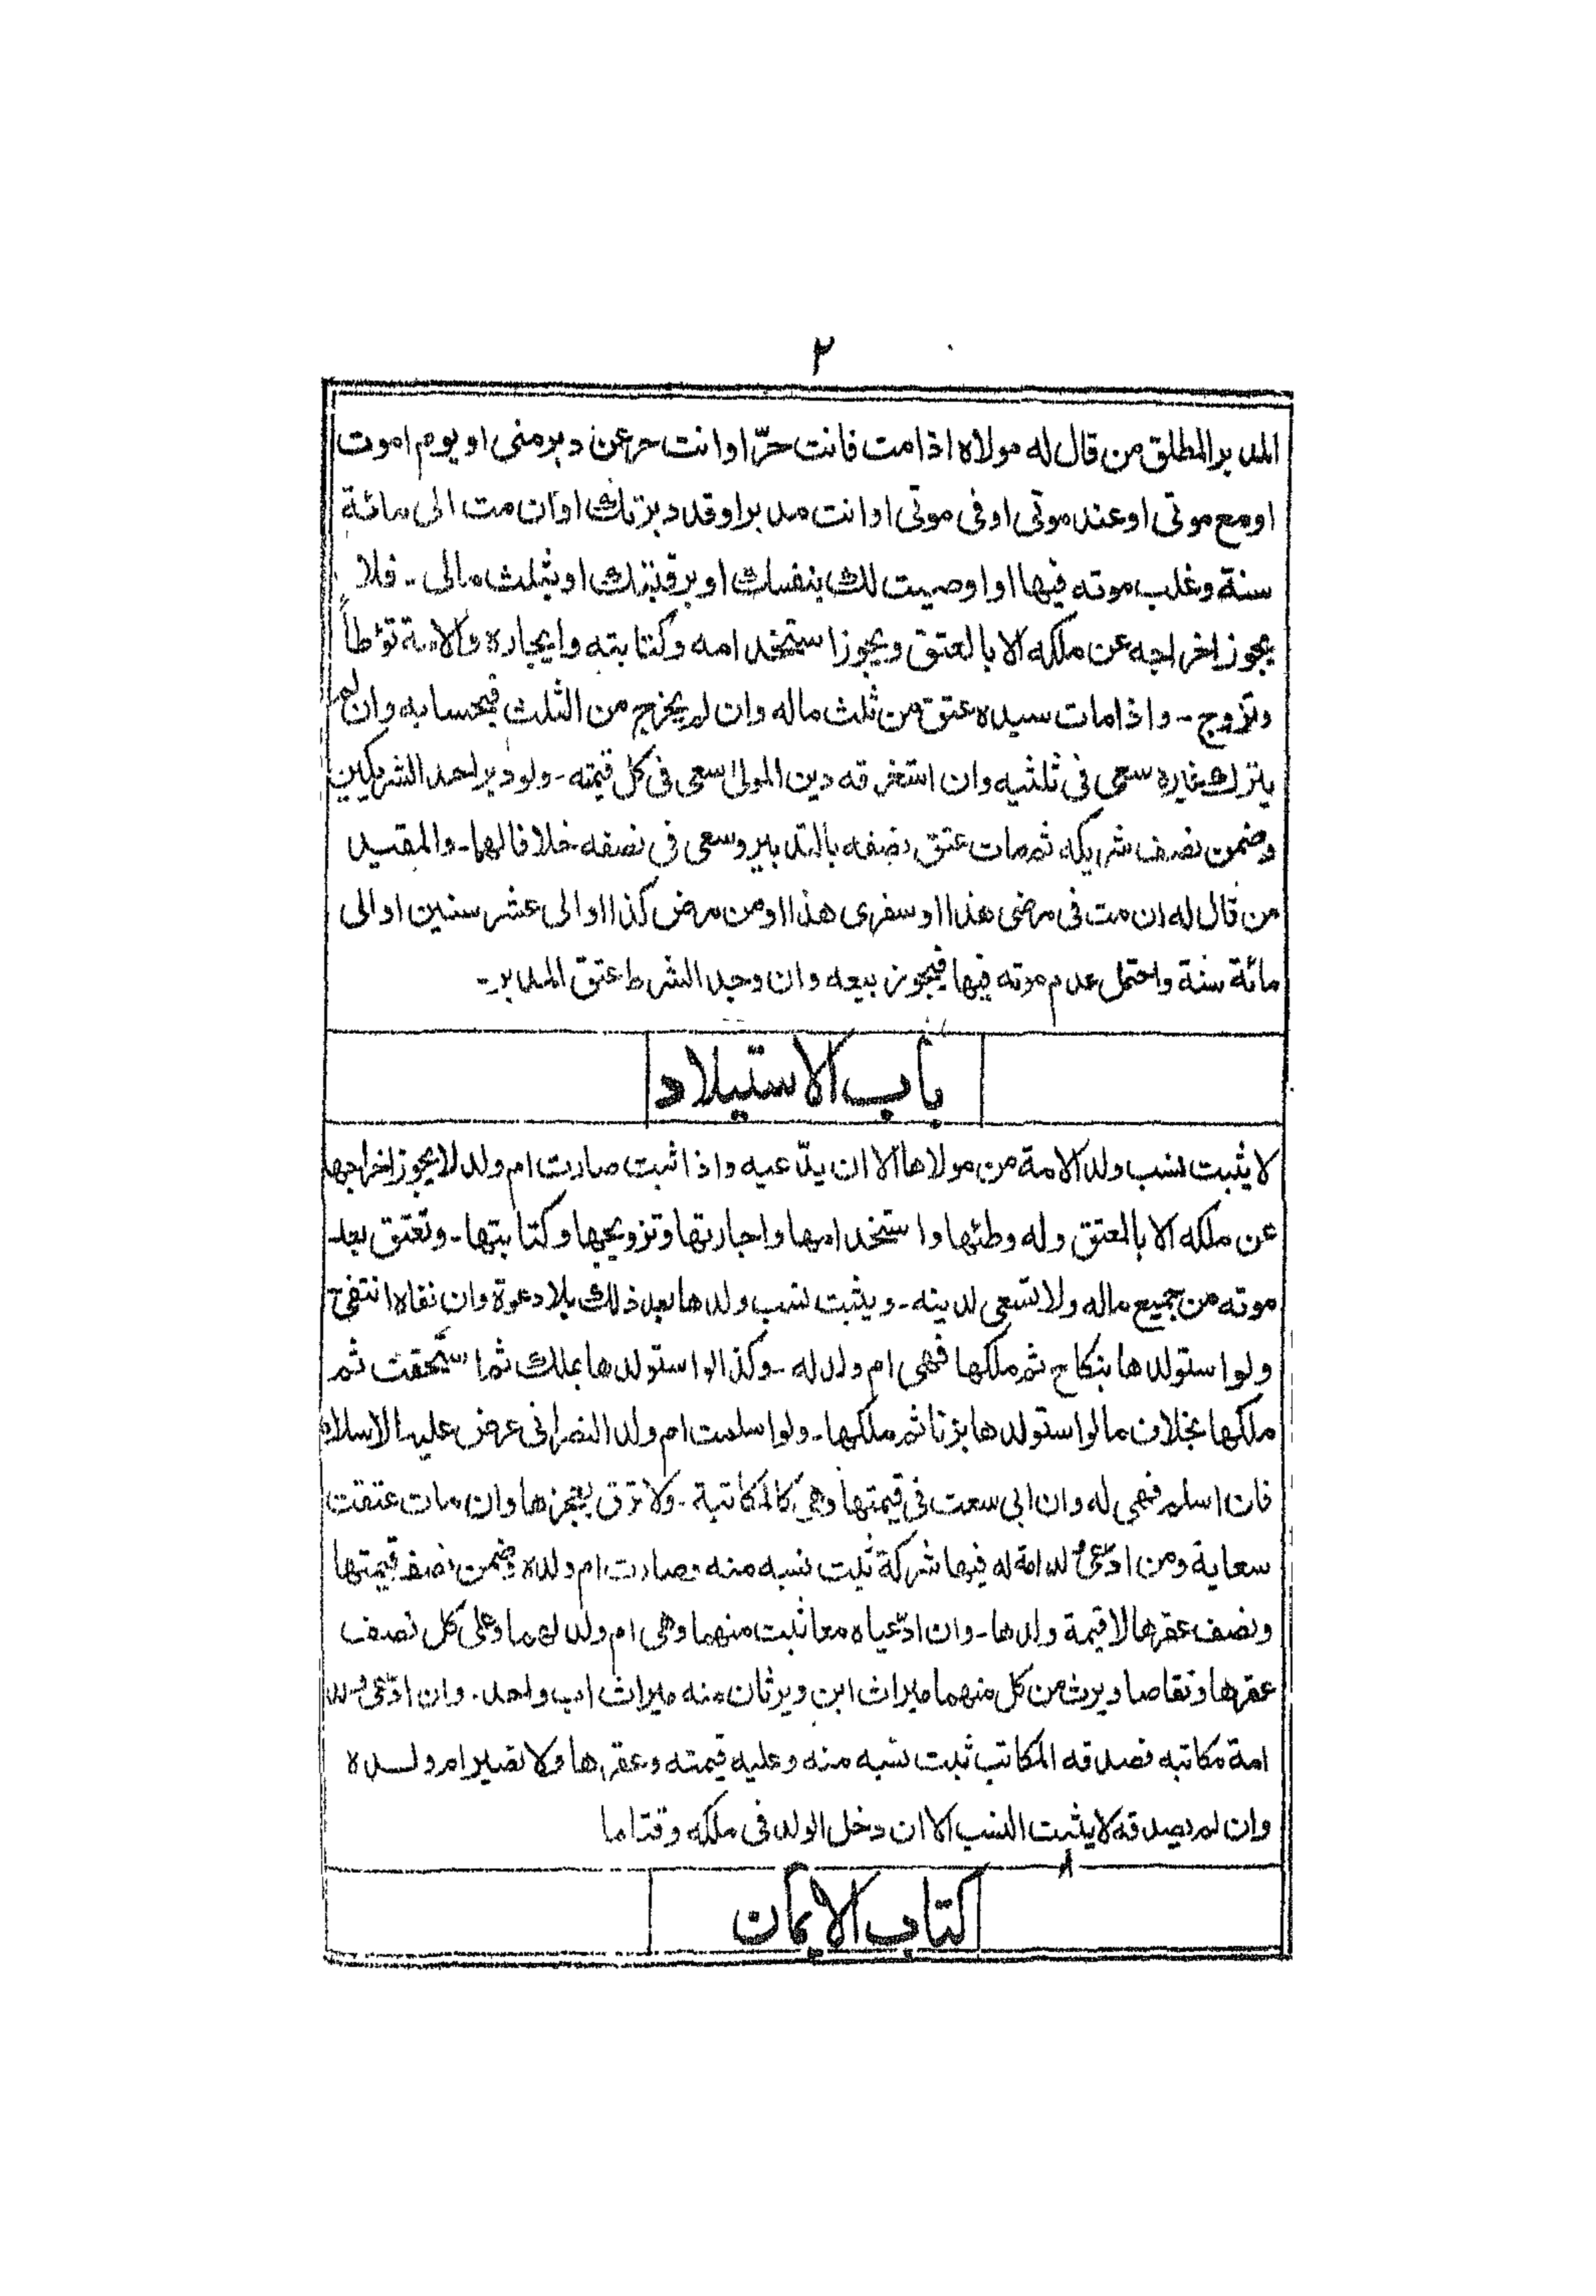 ٢
المدبر المطلق من قال له مولاه اذا مت فانت حرّ او انت حر عن دبر منی او يوم اموت
او مع موتی او عند موتی او فی موتی او انت مدبر او قد دبرتك او ان مت الی مائة
سنة و غلب موته فيها او اوصيت لك بنفسك او برقبتك او بثلث مالی ۔ فلا
يجوز اخراجه عن ملكه الا بالعتق و يجوز استخدامه و كتابته و ايجاره والامة توطأ
و تزوج ۔ و اذا مات سيده عتق من ثلث ماله وان لم يخرج من الثلث فبحسابه وان لم
يترك غيره سعی فی ثلثيه وان استغرقه دين المولیٰ سعی فی كل قيمته ۔ ولو دبر احد الشريكين
وضمن نصف شريكه ثم مات عتق نصفه بالتدبير وسعی فی نصفه خلافا لهما ۔ والمقيد
من قال له ان مت فی مرضی هذا او سفری هذا او من مرض كذا او الی عشر سنين او الی
مائة سنة واحتمل عدم موته فيها فيجوز بيعه وان وجد الشرط عتق المدبر ۔
باب الاستيلاد
لا يثبت نسب ولد الامة من مولاها الا ان يدّعيه واذا ثبت صارت ام ولد لا يجوز اخراجها
عن ملكه الا بالعتق وله وطئها واستخدامها واجارتها وتزويجها وكتابتها ۔ وتعتق بعد
موته من جميع ماله ولا تسعی لدينه ۔ ويثبت نسب ولدها بعد ذلك بلا دعوة وان نفاه انتفی
ولو استولدها بنكاح ثم ملكها فهی ام ولد له ۔ وكذا لو استولدها بملك ثم استحقت ثم
ملكها بخلاف ما لو استولدها بزنا ثم ملكها ۔ ولو اسلمت ام ولد النصرانی عرض عليه الاسلام
فان اسلم فهی له وان ابی سعت فی قيمتها وهی كالمكاتبة ۔ ولا ترق بعجزها وان مات عتقت
سعاية ومن ادّعی ولد امة له فيها شركة ثبت نسبه منه وصارت ام ولده وضمن نصف قيمتها
ونصف عقرها لا قيمة ولدها ۔ وان ادّعياه معا ثبت منهما وهی ام ولد لهما وعلی كل نصف
عقرها وتقاصا ويرث من كل منهما ميراث ابن ويرثان منه ميراث اب واحد ۔ وان ادّعی ولد
امة مكاتبه فصدقه المكاتب ثبت نسبه منه وعليه قيمته وعقرها ولا تصير ام ولده
وان لم يصدقه لا يثبت النسب الا ان دخل الولد فی ملكه وقتا ما
كتاب الايمان